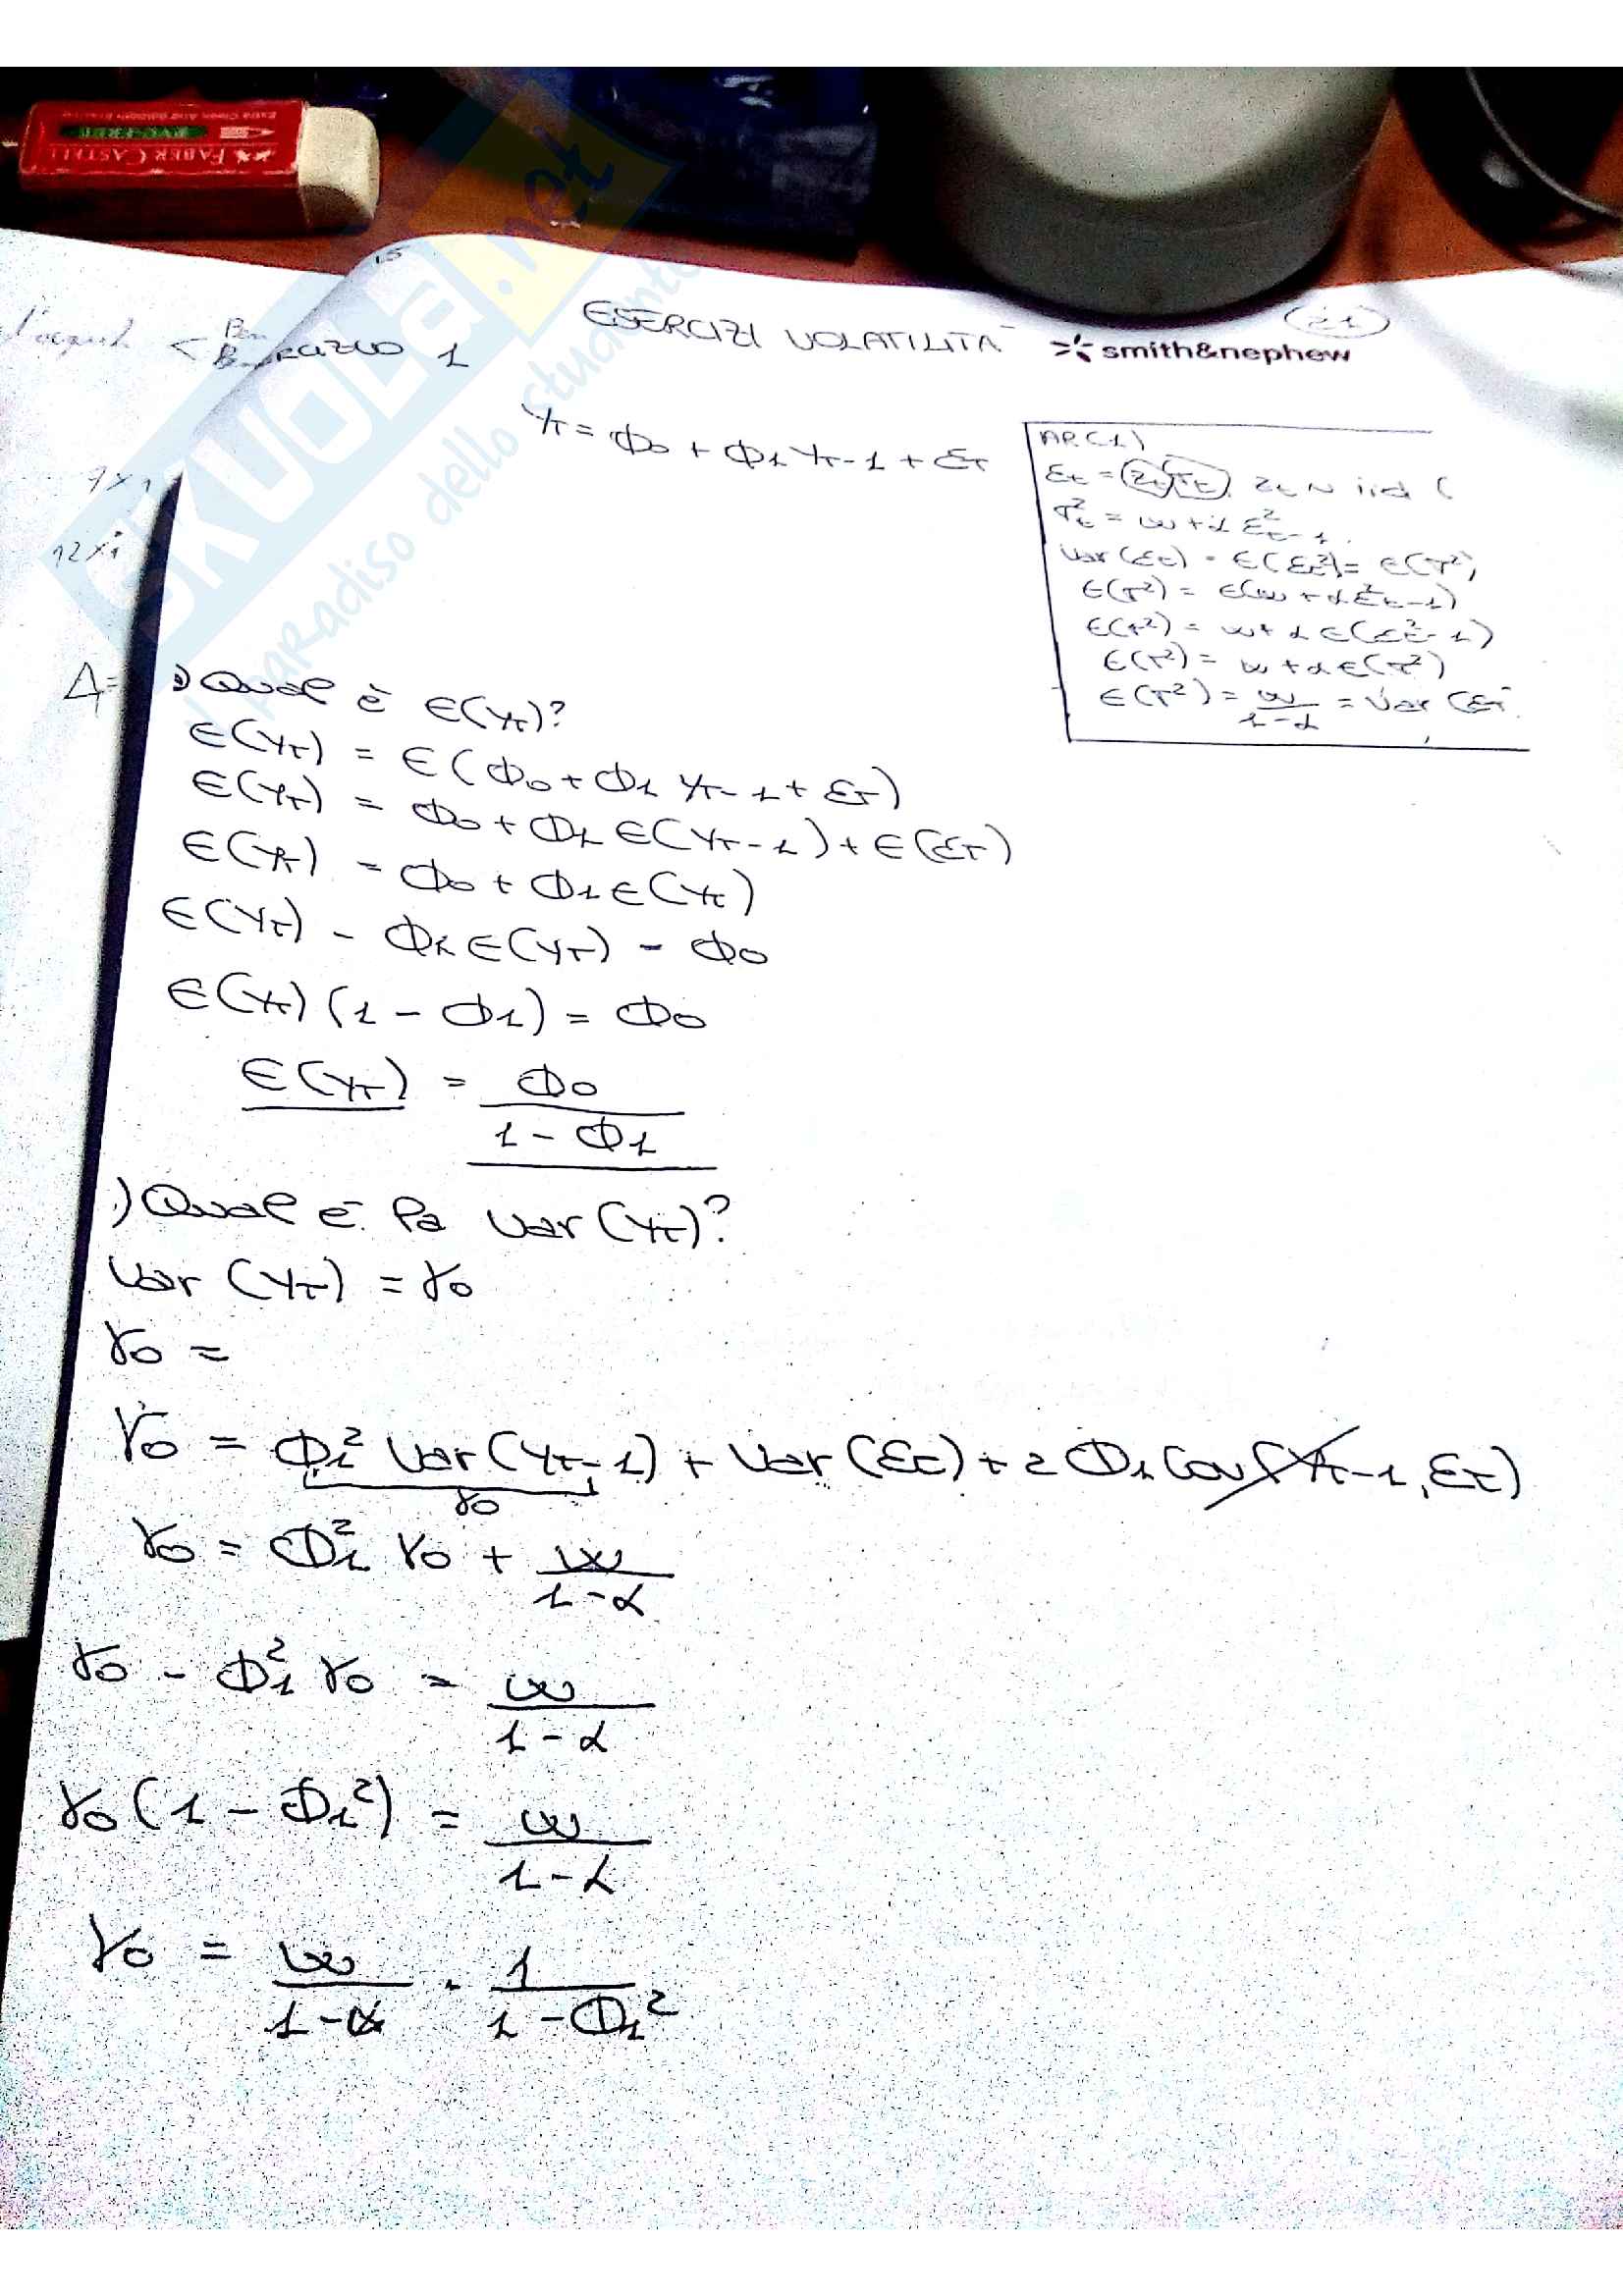 FABER CASTELL
PVC-FREE
SKUOLA.net
il paradiso dello studente
15
ESERCIZI VOLATILITA'
21
smith&nephew
1
Yt = Φ0 + Φ1 Yt-1 + εt
AR(1)
εt = zt σt, zt ~ iid (
σ²t = ω + α ε²t-1.
Var(εt) = E(ε²t) = E(σ²)
E(σ²) = E(ω + α ε²t-1)
E(σ²) = ω + α E(ε²t-1)
E(σ²) = ω + α E(σ²)
E(σ²) = ω / 1-α = Var(εt
7x1
12x1
Δ=
) Qual è E(Yt)?
E(Yt) = E(Φ0 + Φ1 Yt-1 + εt)
E(Yt) = Φ0 + Φ1 E(Yt-1) + E(εt)
E(Yt) = Φ0 + Φ1 E(Yt)
E(Yt) - Φ1 E(Yt) - Φ0
E(Yt) (1 - Φ1) = Φ0
E(Yt) = Φ0 / 1 - Φ1
.) Qual è la Var(Yt)?
Var(Yt) = γ0
γ0 =
γ0 = Φ1² Var(Yt-1) + Var(εt) + 2 Φ1 Cov(Yt-1, εt)
γ0
γ0 = Φ1² γ0 + ω / 1-α
γ0 - Φ1² γ0 = ω / 1-α
γ0 (1 - Φ1²) = ω / 1-α
γ0 = ω / 1-α · 1 / 1-Φ1²